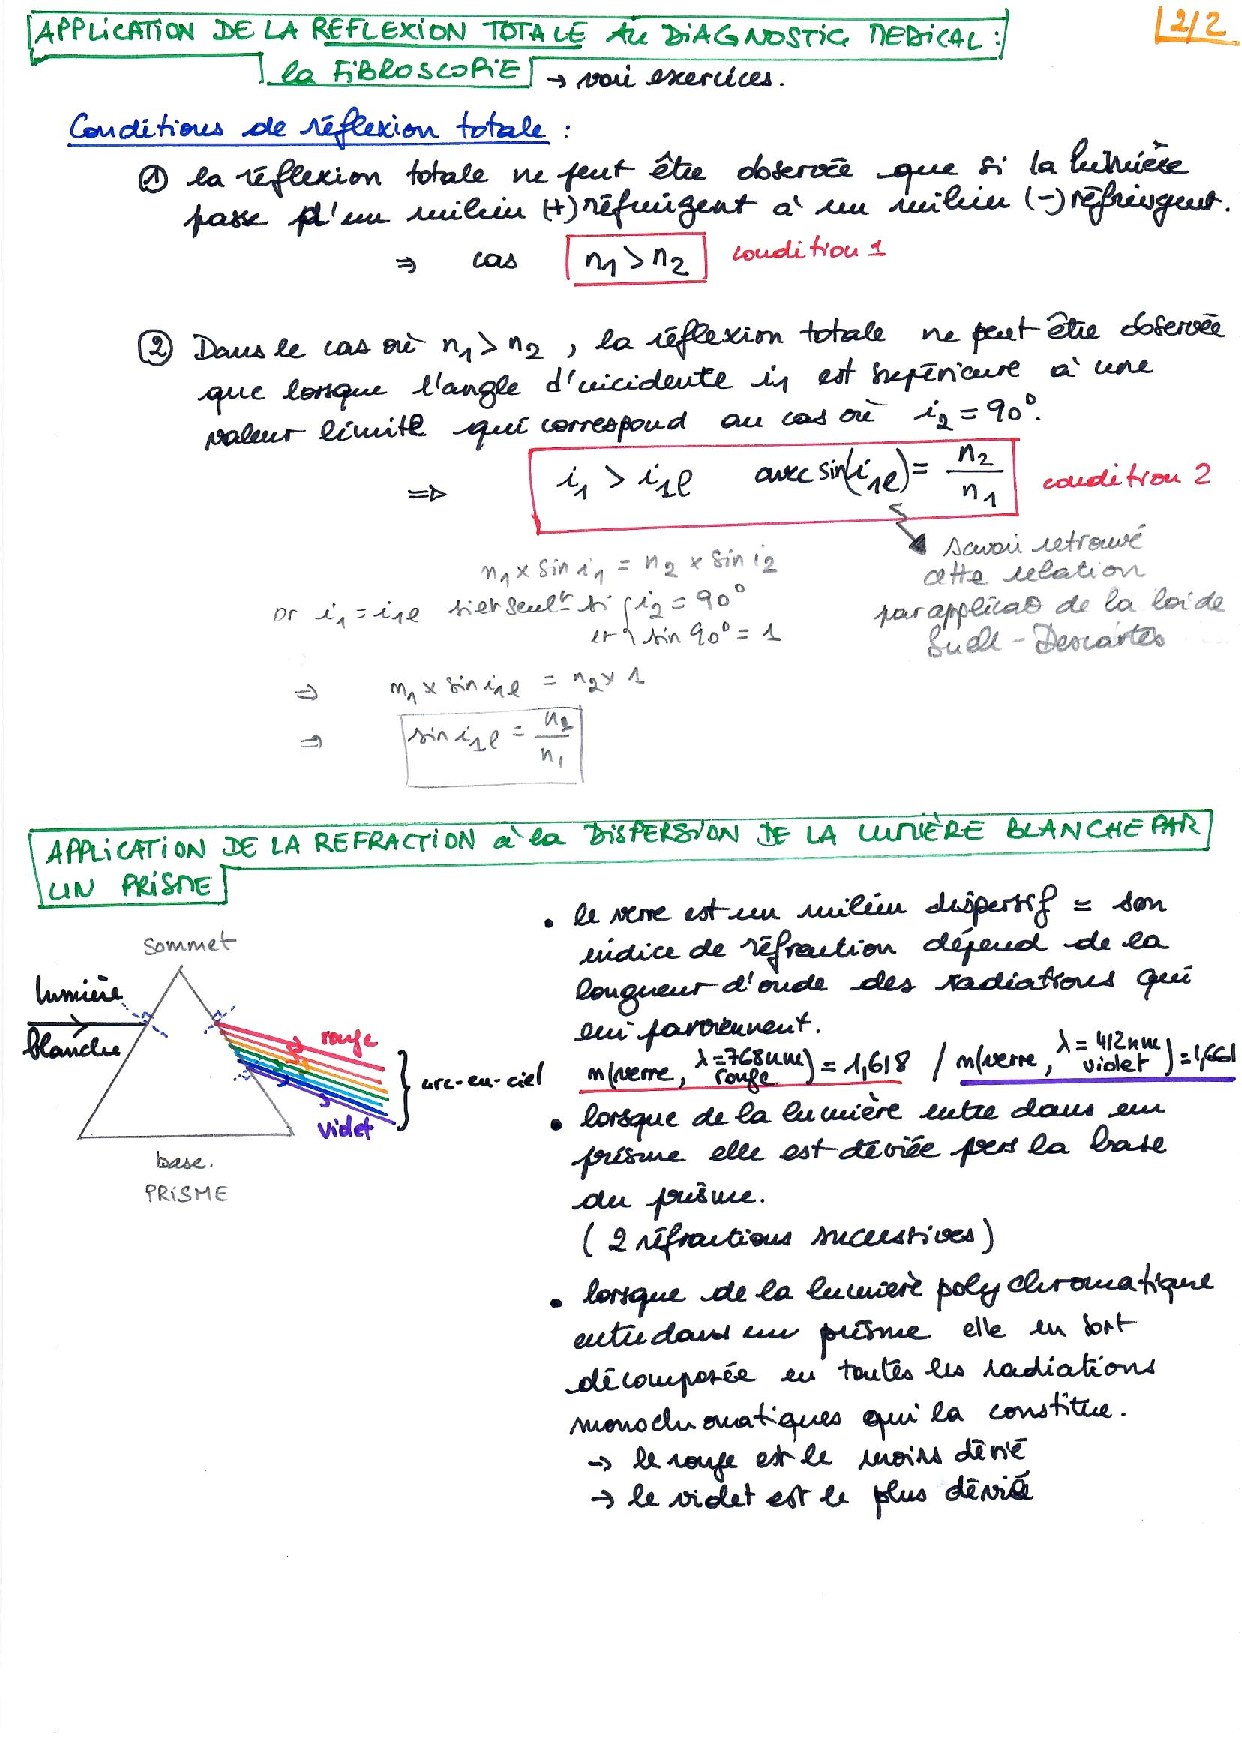 2/2
APPLICATION DE LA REFLEXION TOTALE AU DIAGNOSTIC MEDICAL :
la FIBROSCOPIE → voir exercices.
Conditions de réflexion totale :
① la réflexion totale ne peut être observée que si la lumière
passe d'un milieu (+) réfringent à un milieu (-) réfringent.
⇒ cas n1 > n2 condition 1
② Dans le cas où n1 > n2 , la réflexion totale ne peut être observée
que lorsque l'angle d'incidente i1 est supérieure à une
valeur limite qui correspond au cas où i2 = 90°.
⇒ i1 > i1l avec sin(i1l) = n2/n1 condition 2
savoir retrouvé
cette relation
par applicat° de la loi de
Snell - Descartes
n1 x sin i1 = n2 x sin i2
or i1 = i1l si et seulᵗ si { i2 = 90°
et sin 90° = 1
⇒ n1 x sin i1l = n2 x 1
⇒ sin i1l = n2/n1
APPLICATION DE LA REFRACTION à la DISPERSION DE LA LUMIÈRE BLANCHE PAR
UN PRISME
Sommet
lumière
blanche
rouge
violet
arc-en-ciel
base.
PRISME
• le verre est un milieu dispersif = son
indice de réfraction dépend de la
longueur d'onde des radiations qui
lui parviennent.
n(verre, λ=768nm rouge) = 1,618 / n(verre, λ=412nm violet) = 1,661
• lorsque de la lumière entre dans un
prisme elle est déviée vers la base
du prisme.
( 2 réfractions successives )
• lorsque de la lumière polychromatique
entre dans un prisme elle en sort
décomposée en toutes les radiations
monochromatiques qui la constitue.
→ le rouge est le moins dévié
→ le violet est le plus dévié